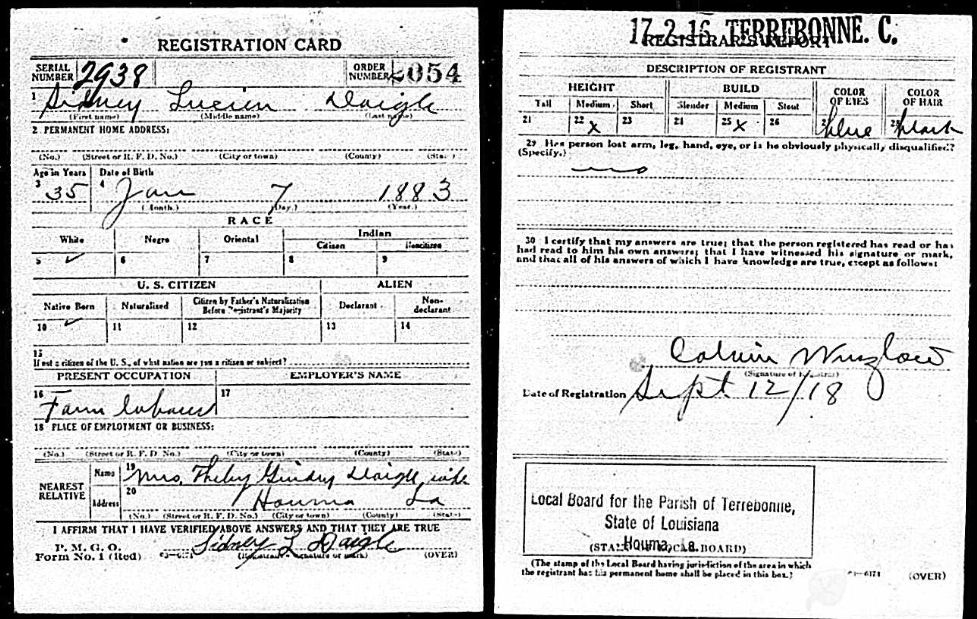 REGISTRATION CARD
SERIAL NUMBER 2938
ORDER NUMBER 2054
1 Sidney Lucien Daigle
(First name) (Middle name) (Last name)
2 PERMANENT HOME ADDRESS:
(No.) (Street or R. F. D. No.) (City or town) (County) (State)
Age in Years Date of Birth
3 35 4 Jan 7 1883
(Month.) (Day.) (Year.)
RACE
White Negro Oriental Indian
Citizen Noncitizen
5 ✓ 6 7 8 9
U. S. CITIZEN ALIEN
Native Born Naturalized Citizen by Father's Naturalization Before Registrant's Majority Declarant Non-declarant
10 ✓ 11 12 13 14
15
If not a citizen of the U. S., of what nation are you a citizen or subject?
PRESENT OCCUPATION EMPLOYER'S NAME
16 Farm 17
18 PLACE OF EMPLOYMENT OR BUSINESS:
(No.) (Street or R. F. D. No.) (City or town) (County) (State)
NEAREST RELATIVE
Name 19 Mrs. Daigle wife
Address 20 Houma La
(No.) (Street or R. F. D. No.) (City or town) (County) (State)
I AFFIRM THAT I HAVE VERIFIED ABOVE ANSWERS AND THAT THEY ARE TRUE
P. M. G. O.
Form No. 1 (Red) Sidney L Daigle (OVER)
(Registrant's signature or mark)
17-2-15 TERREBONNE. C.
REGISTRAR'S REPORT
DESCRIPTION OF REGISTRANT
HEIGHT BUILD COLOR OF EYES COLOR OF HAIR
Tall Medium Short Slender Medium Stout
21 22 x 23 24 25 x 26 27 blue 28 black
29 Has person lost arm, leg, hand, eye, or is he obviously physically disqualified?
(Specify.)
no
30 I certify that my answers are true; that the person registered has read or has
had read to him his own answers; that I have witnessed his signature or mark,
and that all of his answers of which I have knowledge are true, except as follows:
Calvin Wurzlow
(Signature of Registrar)
Date of Registration Sept 12/18
Local Board for the Parish of Terrebonne,
State of Louisiana
Houma, La.
(STAMP OF LOCAL BOARD)
(The stamp of the Local Board having jurisdiction of the area in which
the registrant has his permanent home shall be placed in this box.)
(OVER)